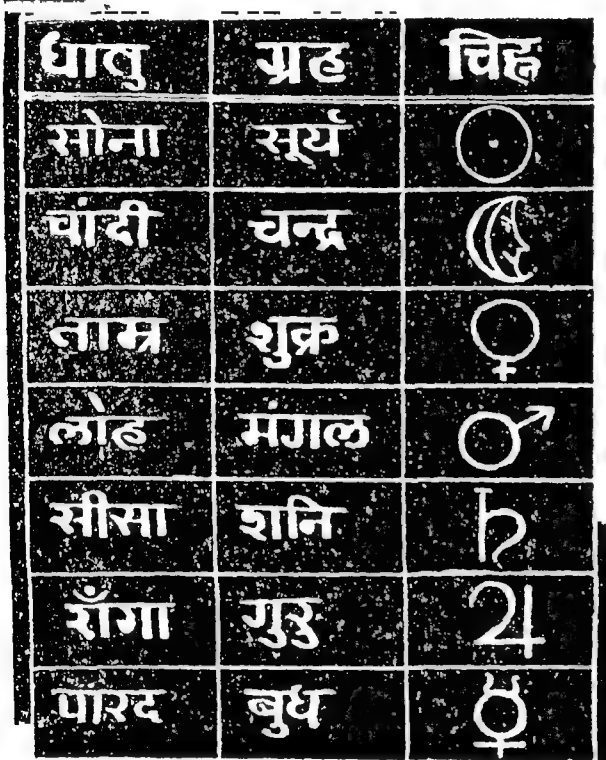 धातु ग्रह चिह्न
सोना सूर्य ☉
चांदी चन्द्र ☾
ताम्र शुक्र ♀
लोह मंगल ♂
सीसा शनि ♄
राँगा गुरु ♃
पारद बुध ☿